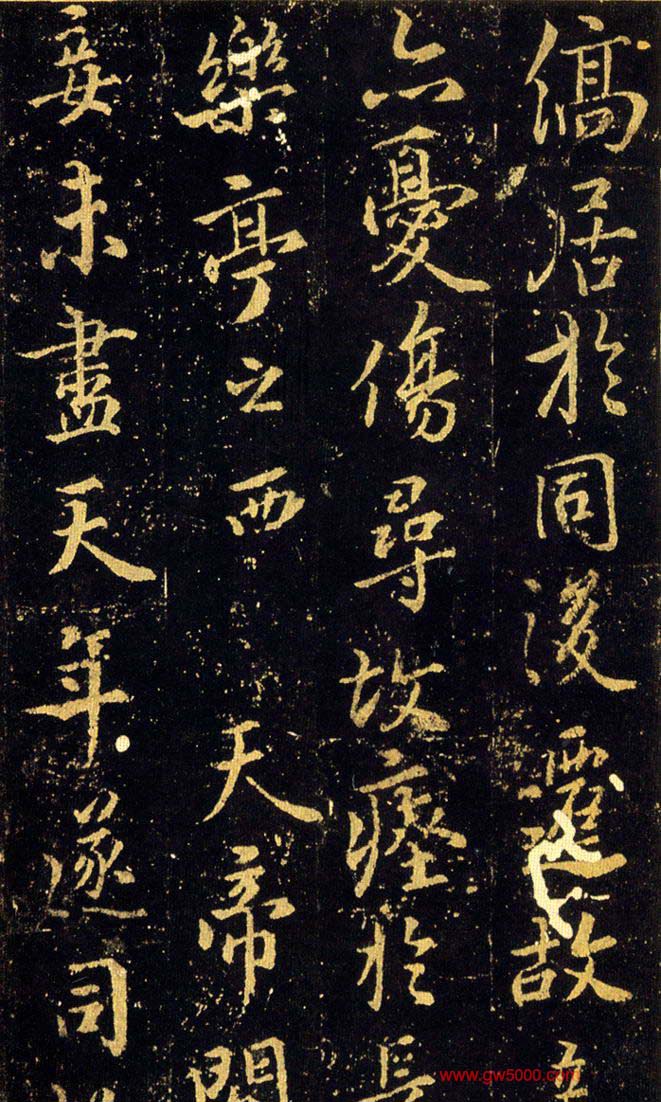 縞居於同後遷故
亦憂傷尋故瘞於長
樂亭之西 天帝聞
妾未盡天年遂司
www.gw5000.com